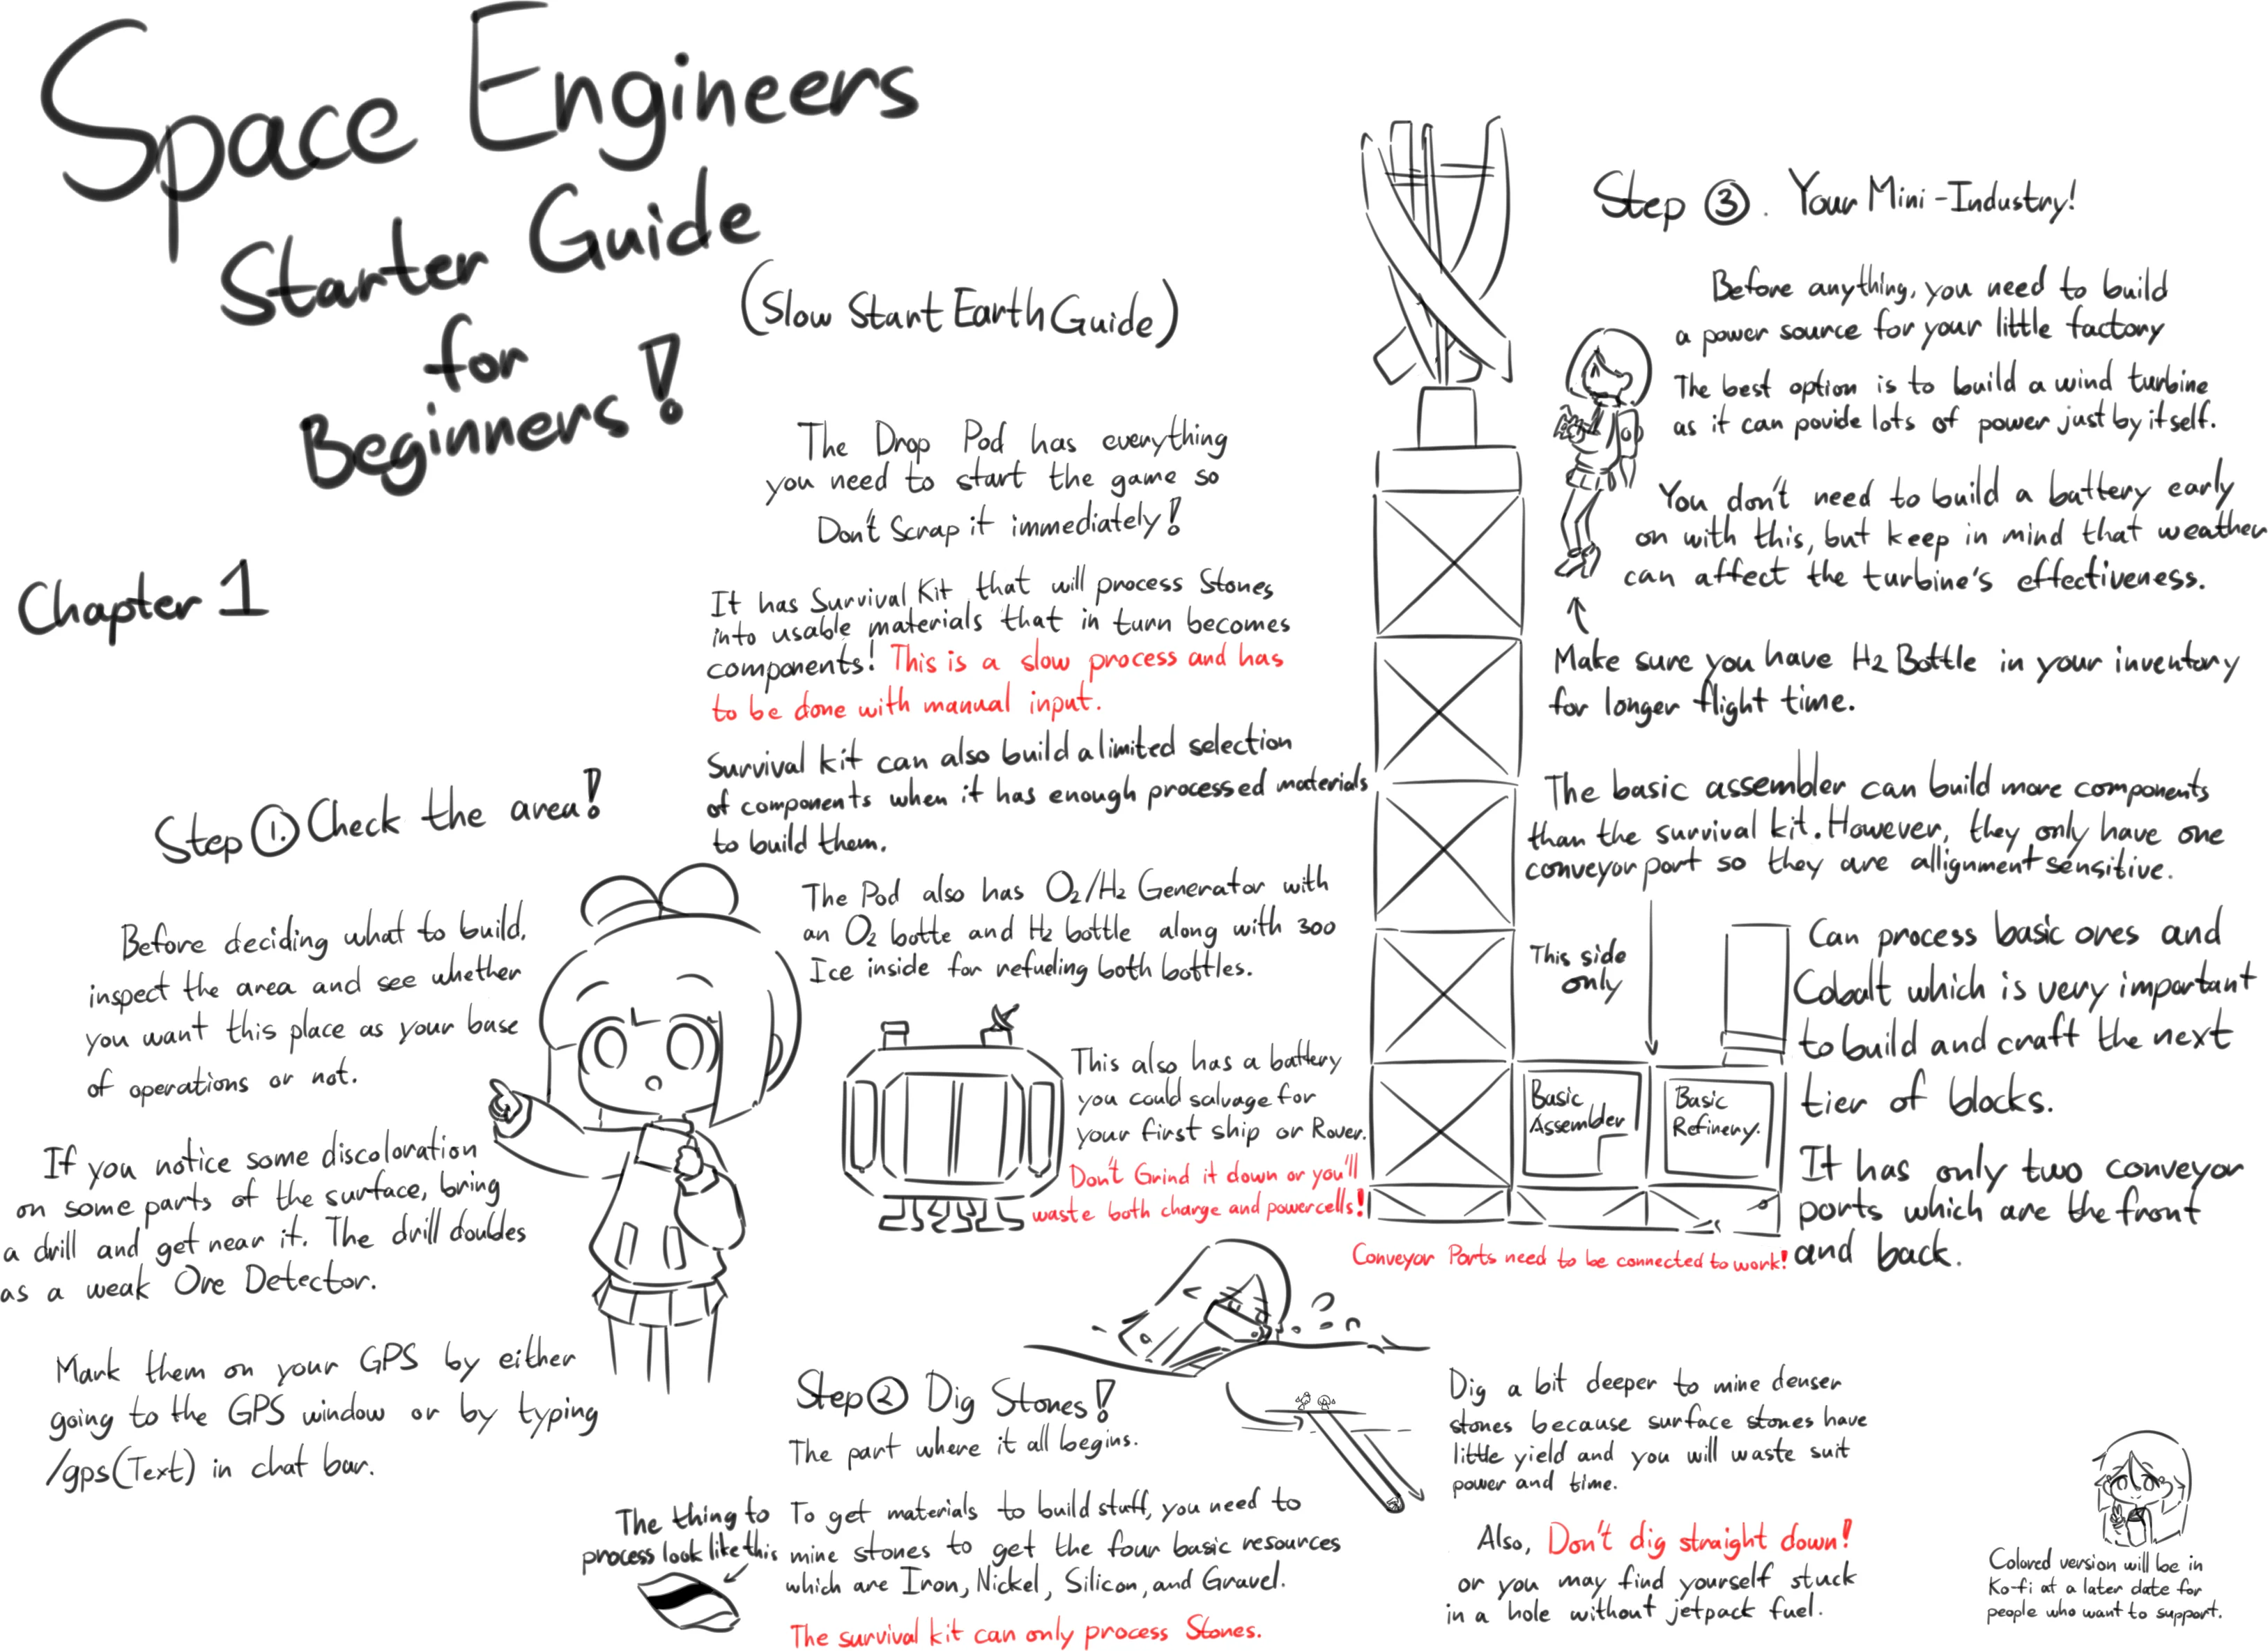 Space Engineers
Starter Guide
for
Beginners!
(Slow Start Earth Guide)
Chapter 1
Step ①. Check the area!
Before deciding what to build,
inspect the area and see whether
you want this place as your base
of operations or not.
If you notice some discoloration
on some parts of the surface, bring
a drill and get near it. The drill doubles
as a weak Ore Detector.
Mark them on your GPS by either
going to the GPS window or by typing
/gps(Text) in chat bar.
The Drop Pod has everything
you need to start the game so
Don't Scrap it immediately!
It has Survival Kit that will process Stones
into usable materials that in turn becomes
components! This is a slow process and has
to be done with manual input.
Survival kit can also build a limited selection
of components when it has enough processed materials
to build them.
The Pod also has O2/H2 Generator with
an O2 botte and H2 bottle along with 300
Ice inside for refueling both bottles.
This also has a battery
you could salvage for
your first ship or Rover.
Don't Grind it down or you'll
waste both charge and powercells!
Step ② Dig Stones!
The part where it all begins.
The thing to
process look like this
To get materials to build stuff, you need to
mine stones to get the four basic resources
which are Iron, Nickel, Silicon, and Gravel.
The survival kit can only process Stones.
Dig a bit deeper to mine denser
stones because surface stones have
little yield and you will waste suit
power and time.
Also, Don't dig straight down!
or you may find yourself stuck
in a hole without jetpack fuel.
Step ③. Your Mini-Industry!
Before anything, you need to build
a power source for your little factory
The best option is to build a wind turbine
as it can povide lots of power just by itself.
You don't need to build a battery early
on with this, but keep in mind that weather
can affect the turbine's effectiveness.
Make sure you have H2 Bottle in your inventory
for longer flight time.
The basic assembler can build more components
than the survival kit. However, they only have one
conveyor port so they are allignment sensitive.
This side
only
Basic
Assembler
Basic
Refinery.
Can process basic ores and
Cobalt which is very important
to build and craft the next
tier of blocks.
It has only two conveyor
ports which are the front
and back.
Conveyor Ports need to be connected to work!
Colored version will be in
Ko-fi at a later date for
people who want to support.